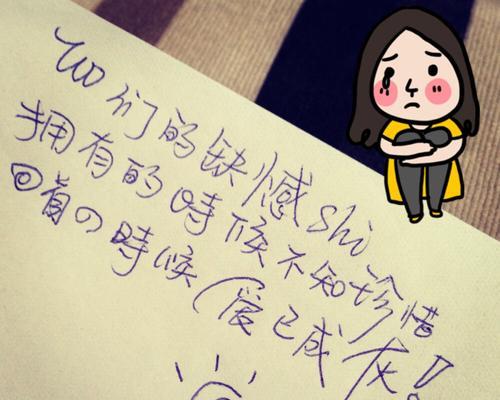 wo们的缺憾shi
拥有的時候不知珍惜
回首の時候(爱已成灰!